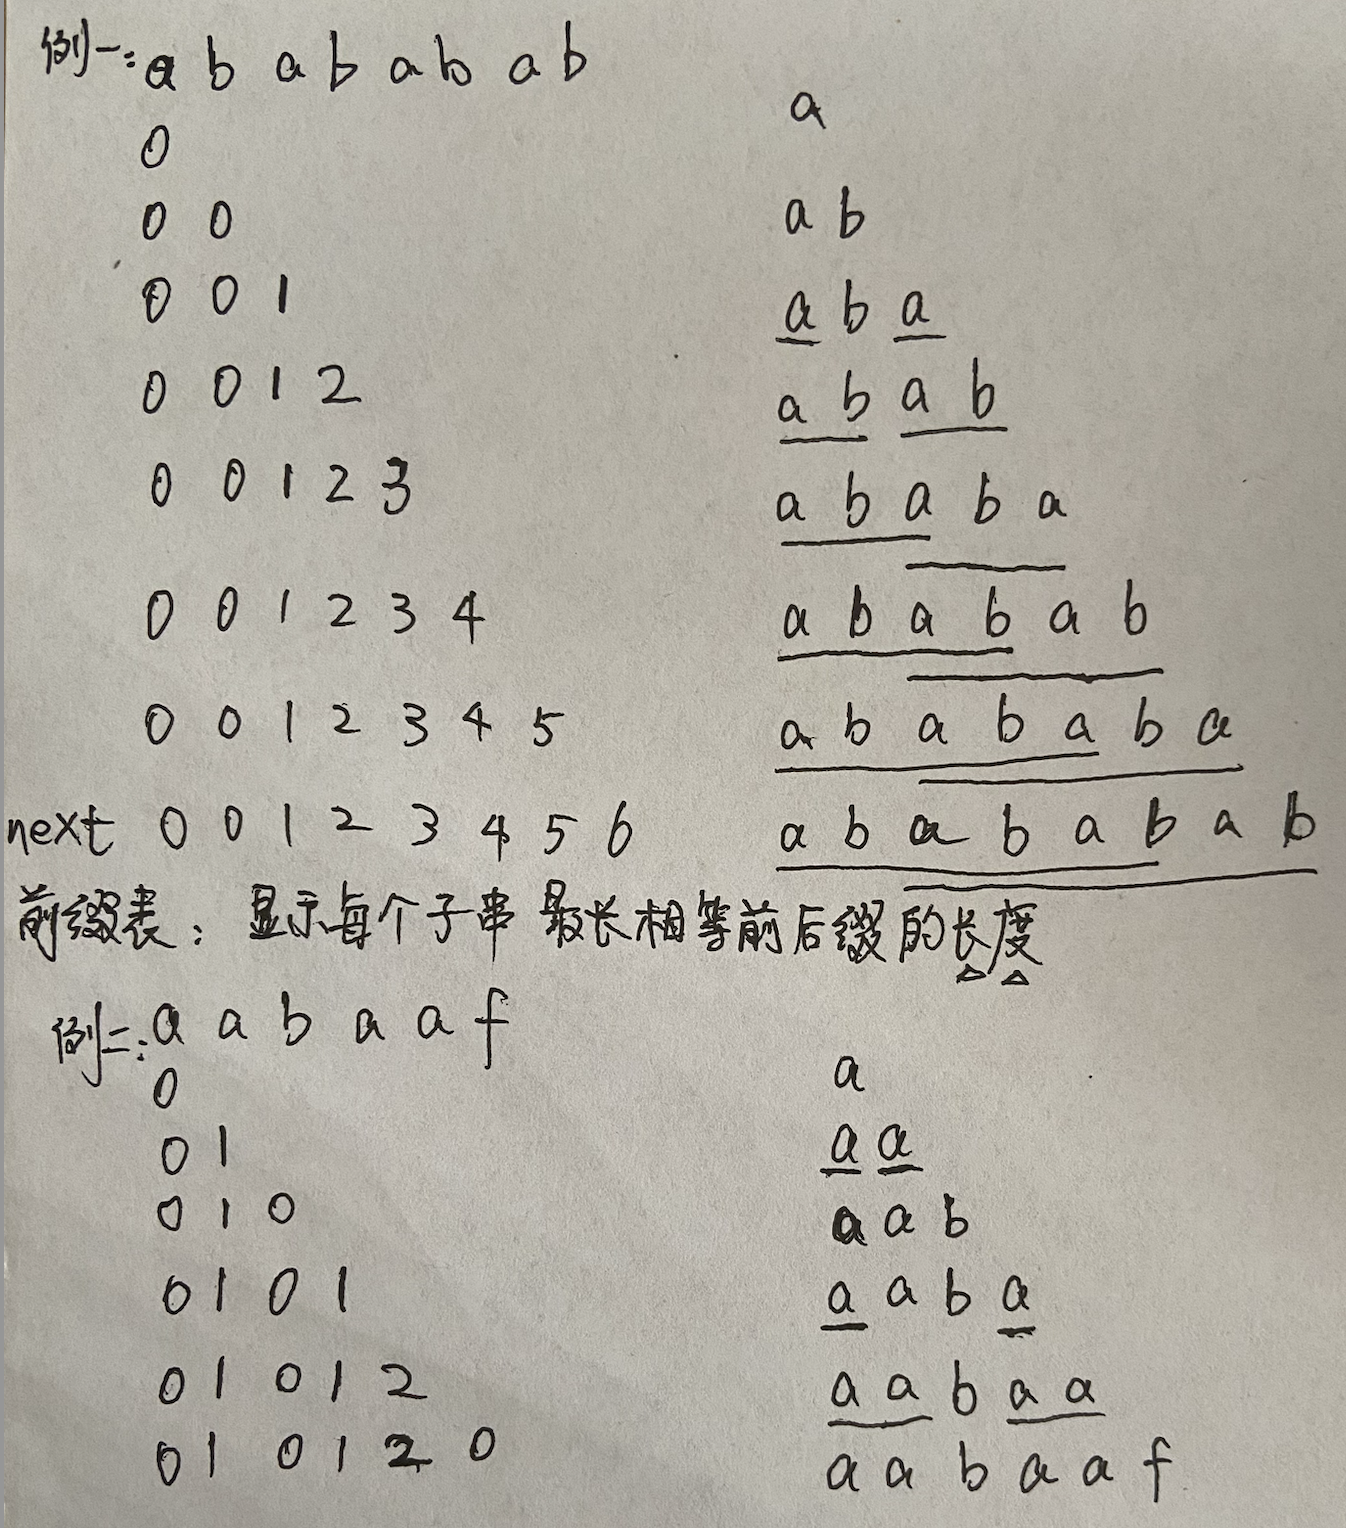 例一: a b a b a b a b
a
0
0 0 a b
0 0 1 a b a
0 0 1 2 a b a b
0 0 1 2 3 a b a b a
0 0 1 2 3 4 a b a b a b
0 0 1 2 3 4 5 a b a b a b a
next 0 0 1 2 3 4 5 6 a b a b a b a b
前缀表: 显示每个子串最长相等前后缀的长度
例二: a a b a a f
0 a
0 1 a a
0 1 0 a a b
0 1 0 1 a a b a
0 1 0 1 2 a a b a a
0 1 0 1 2 0 a a b a a f